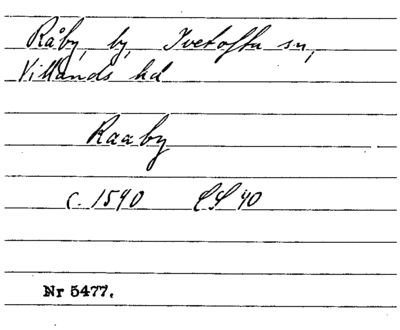 Råby, by, Ivetofta sn,
Villands hd
Raaby
c. 1590 LL 40
Nr 5477.